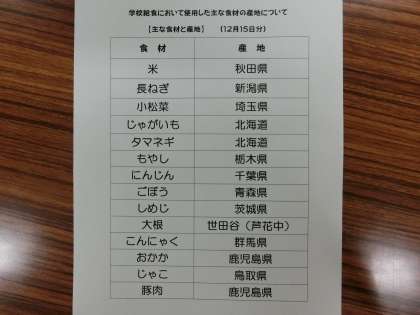 学校給食において使用した主な食材の産地について
【主な食材と産地】 （12月15日分）
食 材 産 地
米 秋田県
長ねぎ 新潟県
小松菜 埼玉県
じゃがいも 北海道
タマネギ 北海道
もやし 栃木県
にんじん 千葉県
ごぼう 青森県
しめじ 茨城県
大根 世田谷（芦花中）
こんにゃく 群馬県
おかか 鹿児島県
じゃこ 鳥取県
豚肉 鹿児島県